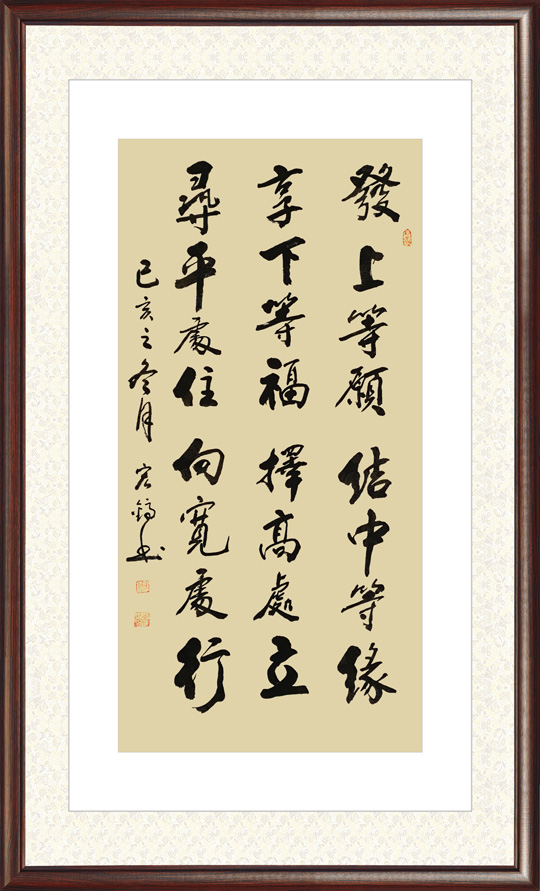 發上等願結中等緣
享下等福擇高處立
尋平處住向寬處行
己亥之冬月 宏鎬書